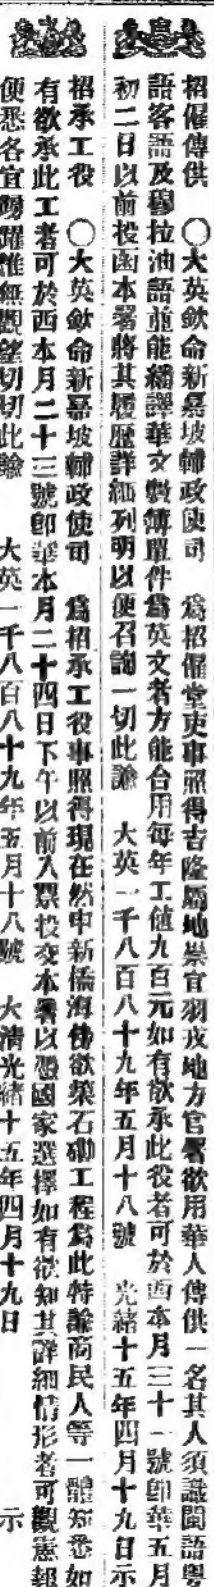 招僱傳供　〇大英欽命新嘉坡輔政使司　爲招僱堂吏事照得吉隆屬地崇官羽戎地方官署欲用華人傳供一名其人須識閩語粵
語客語及穆拉油語並能繙譯華文數簿單件爲英文者方能合用每年工値九百元如有欲承此役者可於西本月三十一號卽華五月
初二日以前投函本署將其履歷詳細列明以便召詢一切此諭　大英一千八百八十九年五月十八號　光緒十五年四月十九日示
招承工役　〇大英欽命新嘉坡輔政使司　爲招承工役事照得現在然申新橋海傍欲築石磡工程爲此特諭商民人等一體知悉如
有欲承此工者可於西本月二十三號卽華本月二十四日下午以前入票投交本署以憑國家選擇如有欲知其詳細情形者可觀憲報
便悉各宜踴躍惟無觀望切切此諭　大英一千八百八十九年五月十八號　大清光緒十五年四月十九日　示